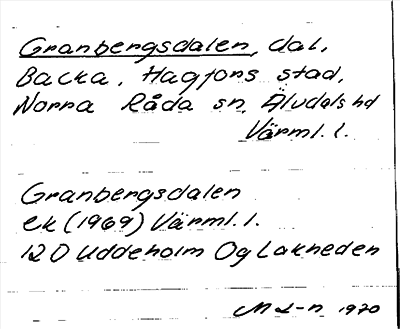 Granbergsdalen, dal,
Backa, Hagfors stad,
Norra Råda sn, Älvdals hd
Värml. l.
Granbergsdalen
ek (1969) Värml. l.
12 D Uddeholm Og Lakneden
M L-n 1970